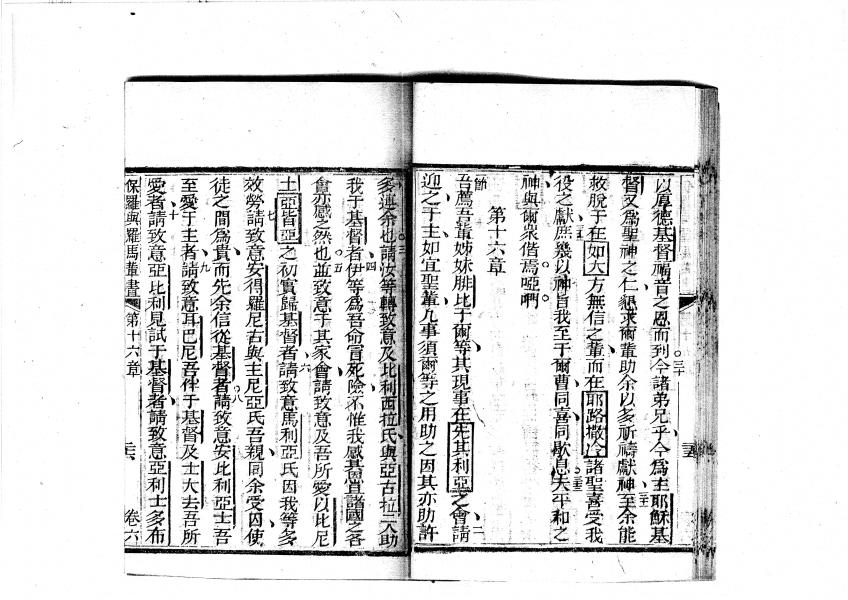 以厚德基督福音之恩而到今諸弟兄乎今為主耶穌基
督又為聖神之仁懇求爾輩助余以多祈禱獻神至余能
救脫于在如大方無信之輩而在耶路撒冷諸聖喜受我
役之獻庶幾以神旨我至于爾曹同喜同歇息夫平和之
神與爾眾偕焉啞𠵽
第十六章
節吾薦吾輩姊妹腓比于爾等其現事在先其利亞之會請
迎之于主如宜聖輩凡事須爾等之用助之因其亦助許
多連余也請汝等轉致意及比利西拉氏與亞古拉大助
我于基督者伊等為吾命冒死險不惟我感恩宜諸國之各
會亦感之然也並致意于其家會請致意及吾所愛以比尼
土亞皆亞之初實歸基督者請致意馬利亞氏因我等多
效勞請致意安得羅尼古與主尼亞氏吾親同余受囚使
徒之間為貴而先余信從基督者請致意安比利亞士吾
至愛于主者請致意耳巴尼吾伴于基督及士大去吾所
愛者請致意亞比利見試于基督者請致意亞利士多布
保羅與羅馬輩書 第十六章 卷六